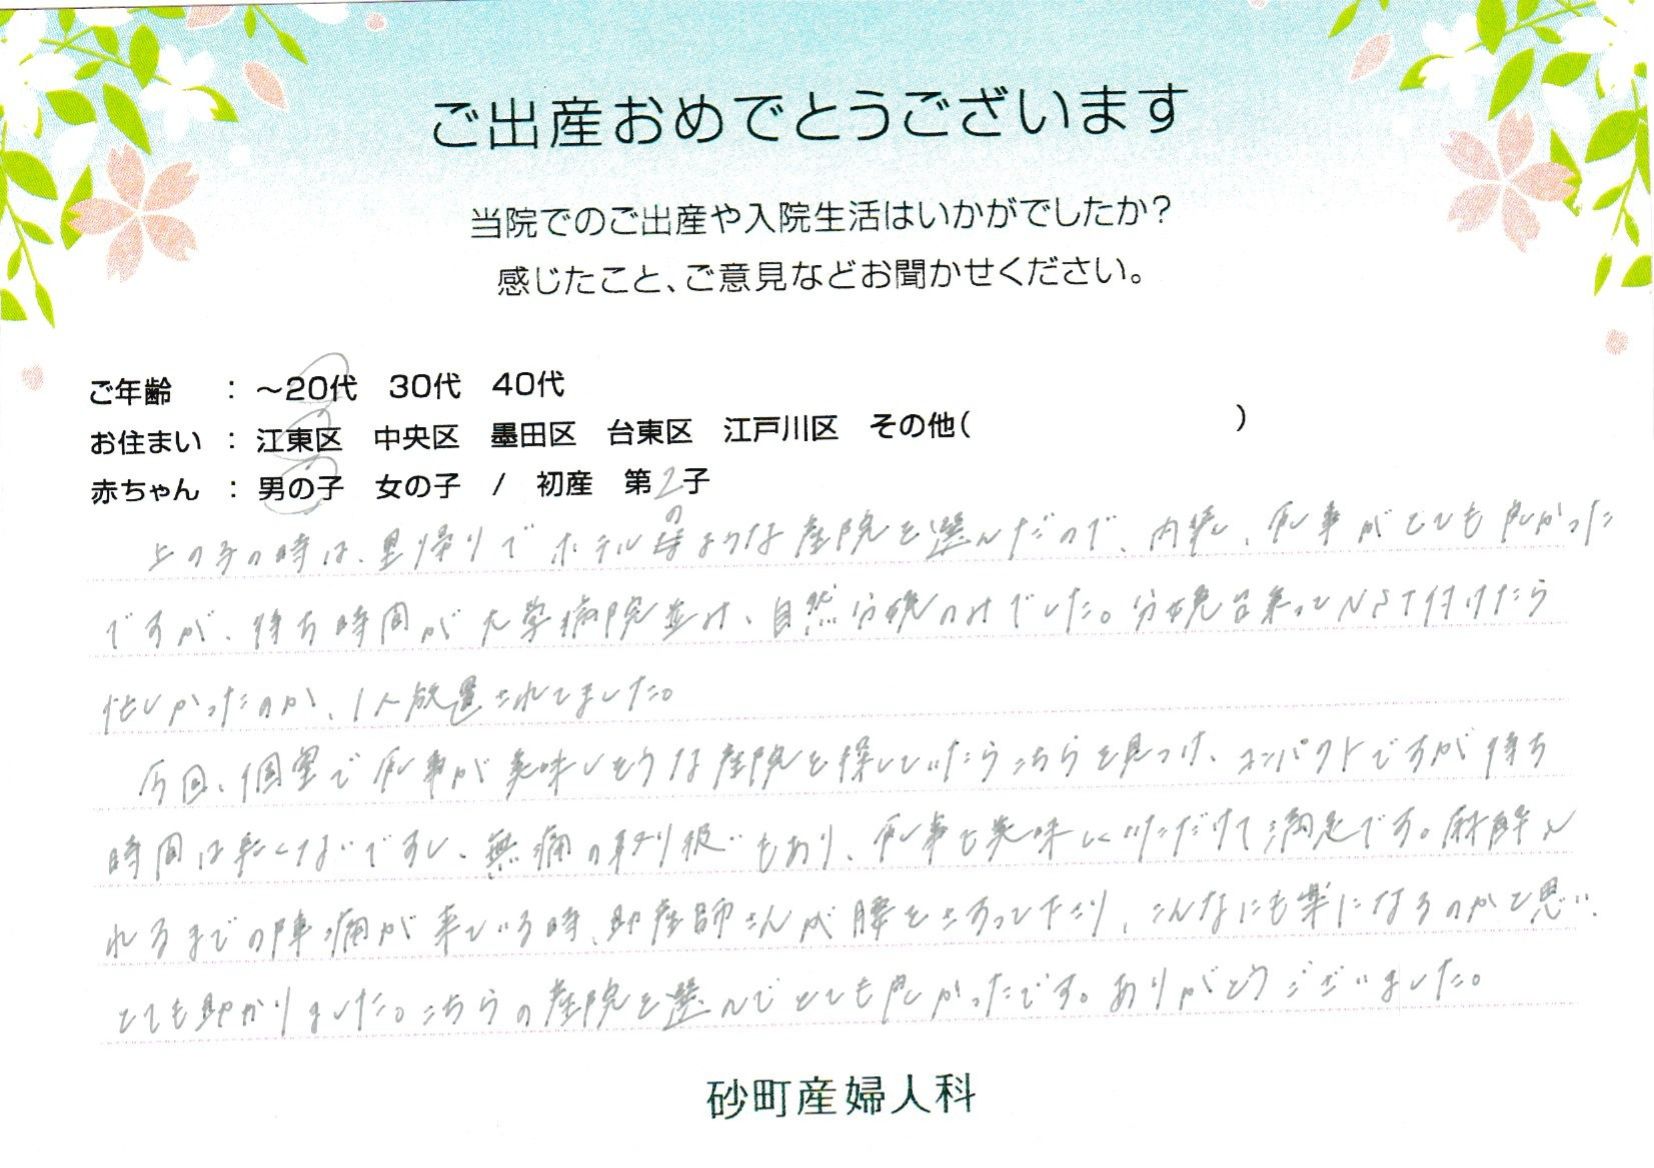 ご出産おめでとうございます
当院でのご出産や入院生活はいかがでしたか?
感じたこと、ご意見などお聞かせください。
ご年齢 : ～20代 30代 40代
お住まい : 江東区 中央区 墨田区 台東区 江戸川区 その他( )
赤ちゃん : 男の子 女の子 / 初産 第2子
上の子の時は、里帰りでホテルのような産院を選んだので、内装、食事がとても良かった
ですが、待ち時間が大学病院並み、自然分娩のみでした。分娩台乗ってNST付けたら
忙しかったのか、1人放置されてました。
今回、個室で食事が美味しそうな産院を探していたらこちらを見つけ、コンパクトですが待ち
時間は長くないですし、無痛の取り扱いもあり、食事も美味しくいただけて満足です。麻酔入
れるまでの陣痛が来ている時、助産師さんが腰をさすって下さり、こんなにも楽になるのかと思い、
とても助かりました。こちらの産院を選んでとても良かったです。ありがとうございました。
砂町産婦人科